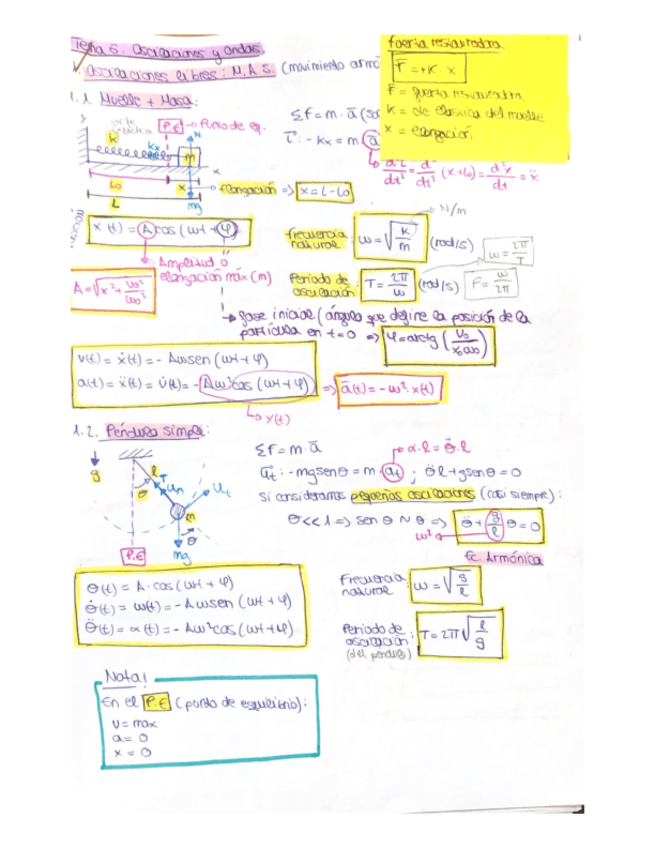 Tema 6. Oscilaciones y ondas.
1. Oscilaciones libres: M.A.S. (movimiento armó
fuerza restauradora
F = +K · x
F = fuerza restauradora
K = cte elástica del muelle
x = elongación
1.1. Muelle + Masa:
P.E → Punto de eq.
Σf = m · a
τ: - kx = m · a
y
N
k
kx
m
x
x
Lo
L
mg
elongación => x = L - Lo
(x + lo) = d²x/dt = ẍ
x(t) = A cos (ωt + φ)
Amplitud o
elongación máx (m)
A = √x² + v₀²/ω₀²
Frecuencia
natural
ω = √k/m (rad/s)
N/m
ω = 2π/T
Periodo de
oscilación
T = 2π/ω (rad/s)
F = ω/2π
fase inicial (ángulo que define la posición de la
partícula en t=0 => φ = arctg (v₀/x₀ω₀)
v(t) = ẋ(t) = - Aω sen (ωt + φ)
a(t) = ẍ(t) = v̇(t) = - Aω² cos (ωt + φ) => a(t) = - ω² · x(t)
x(t)
1.2. Péndulo simple:
g
l
θ
T
un
ut
m
θ
P.E
mg
Σf = m · a
α · l = θ̈ · l
ut: - mg sen θ = m · at ; θ̈ l + g sen θ = 0
Si consideramos pequeñas oscilaciones (casi siempre):
θ << 1 => sen θ ~ θ => θ̈ + g/l θ = 0
ω²
Ec. Armónica
θ(t) = A · cos (ωt + φ)
θ̇(t) = ω(t) = - Aω sen (ωt + φ)
θ̈(t) = α(t) = - Aω² cos (ωt + φ)
Frecuencia
natural : ω = √g/l
Periodo de
oscilación : T = 2π √l/g
(del péndulo)
Nota!
En el P.E (punto de equilibrio):
v = max
a = 0
x = 0